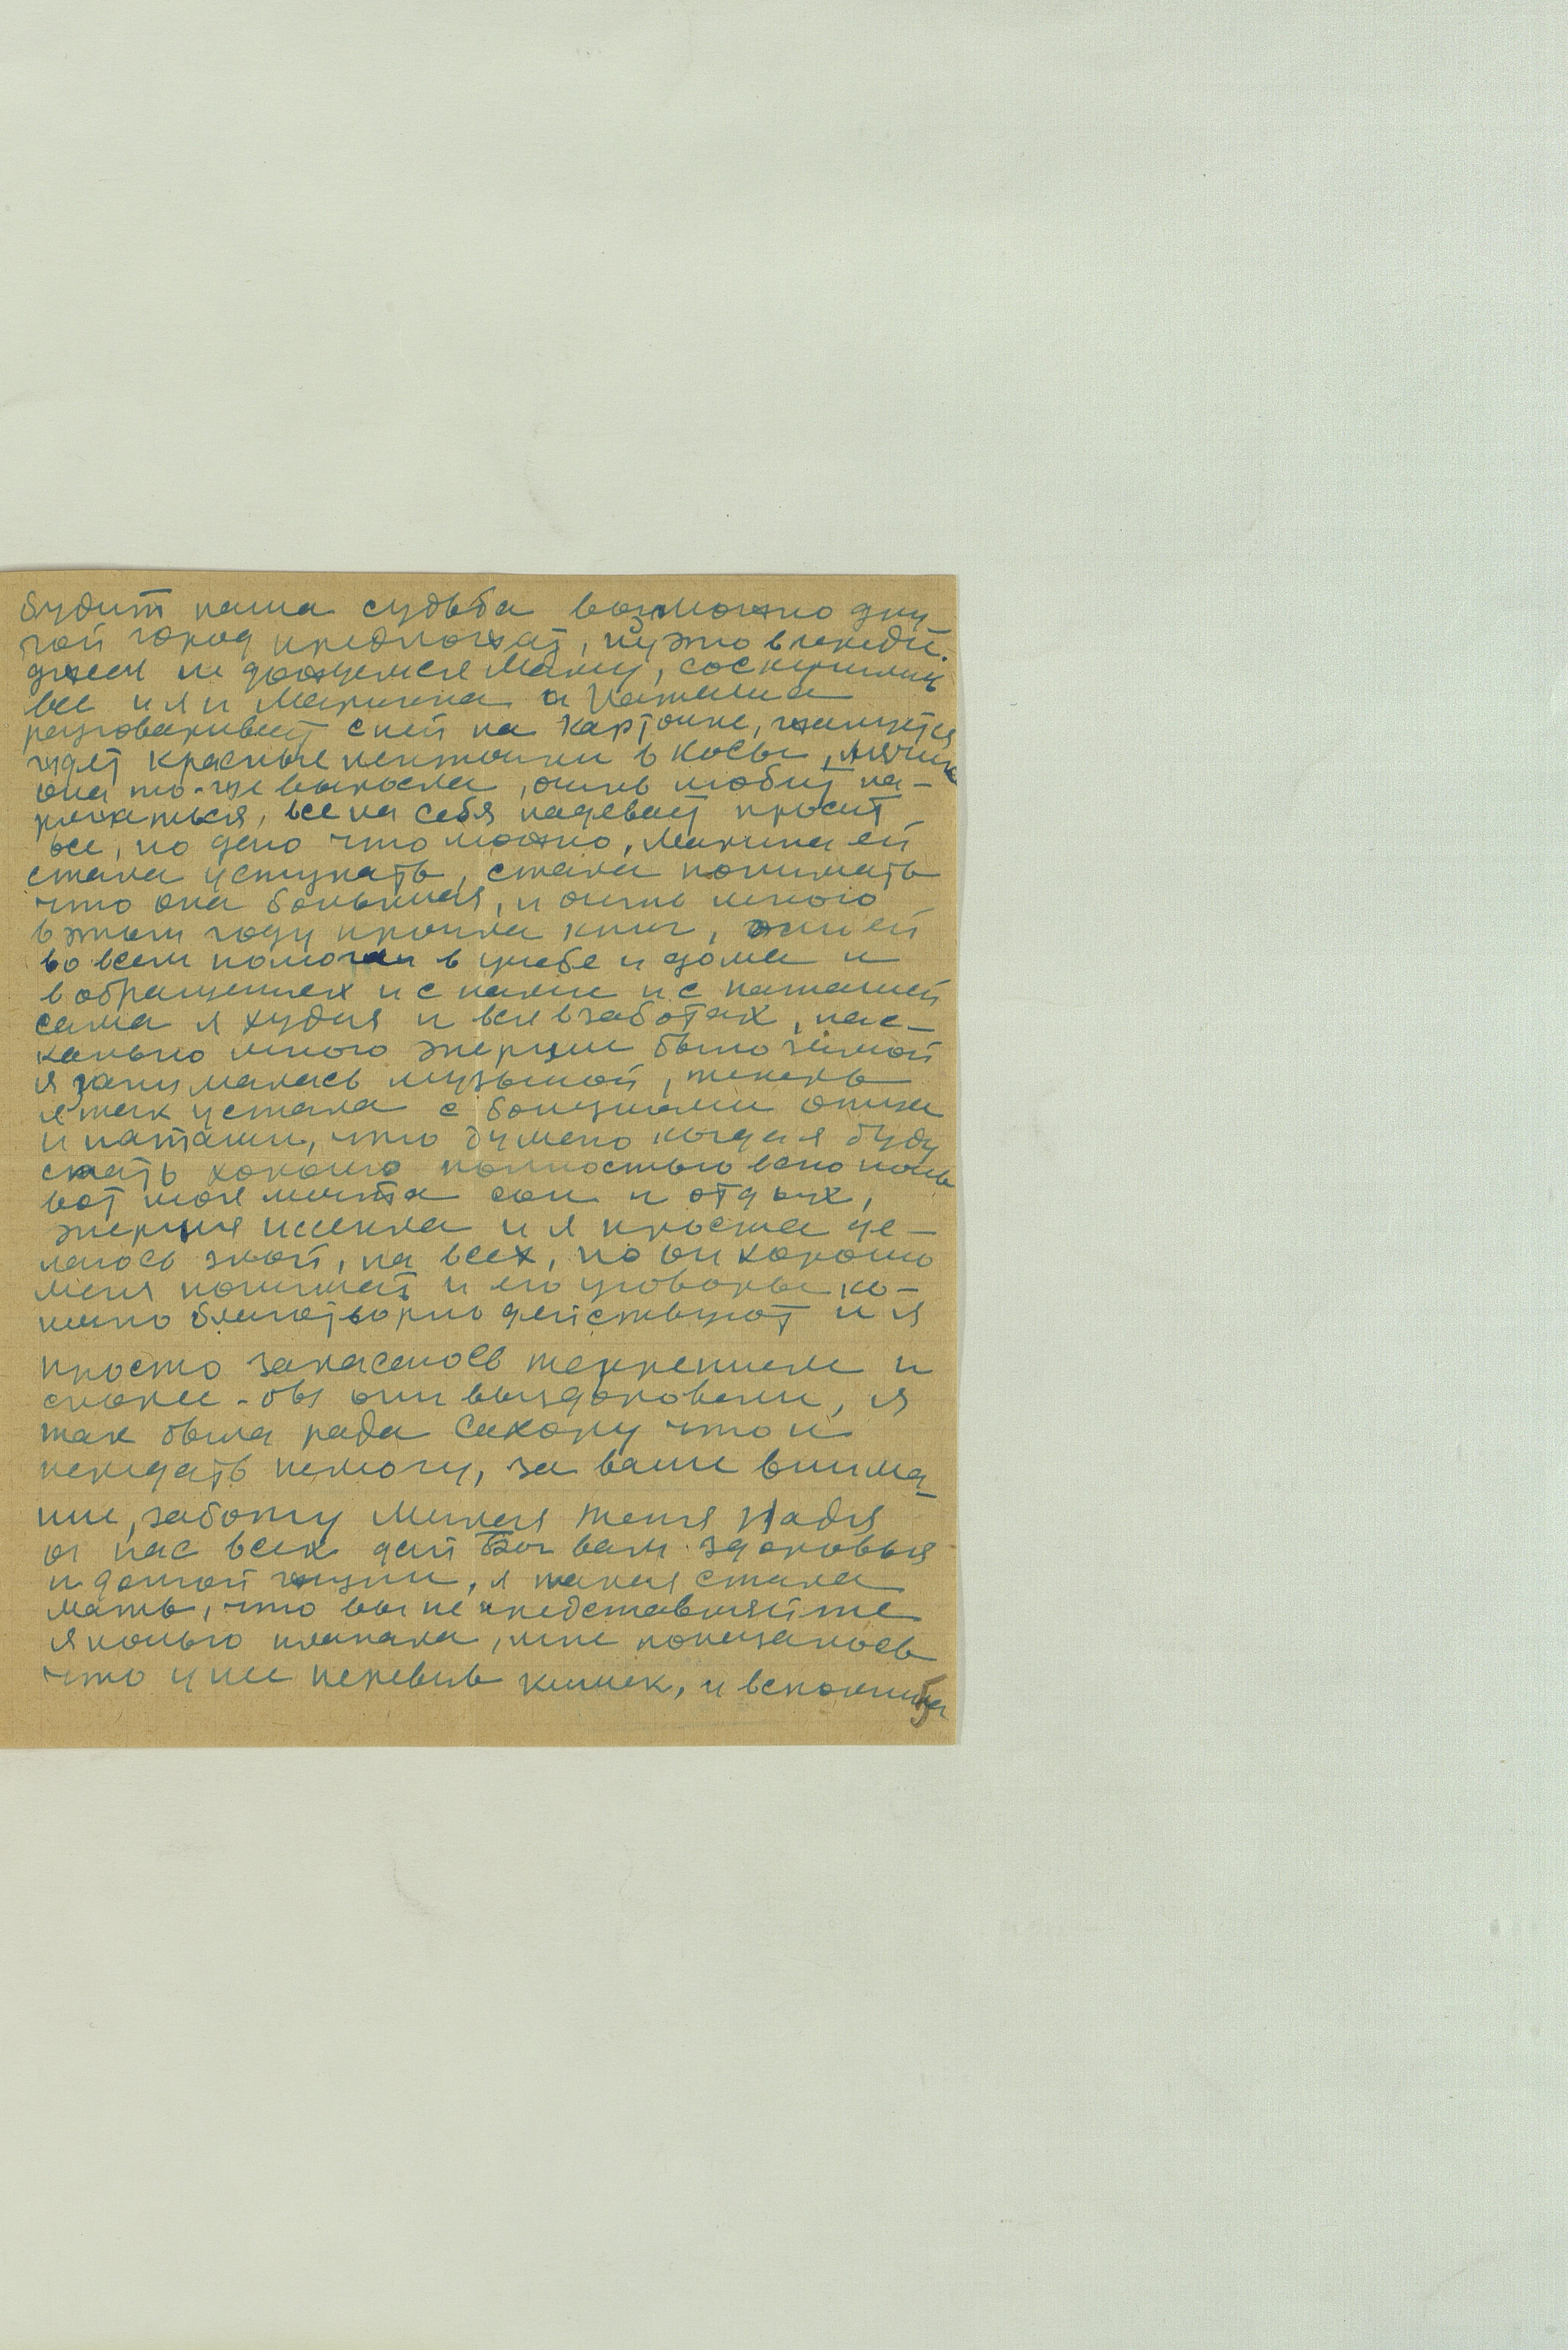 будит наша судьба возможно дру
гой город предложат, ну это впереди.
ждем не дождемся Маму, соскучились
все и я и Марина а Наташа
разговаривает с ней на карточке, жалуется
ждет красные ленточки в косы,
она то-же выросла, очень любит на-
ряжаться, все на себя надевает просит
все, но даю что можно, Марина ей
стала уступать, стала понимать
что она большая, и очень много
в этом году прочла книг, он ей
во всем помогал в учебе и дома и
в обращениях и с нами и с наташей
сама я худая и вся в заботах, нас-
колько много энергии было зимой
я занималась музыкой, теперь
я так устала с болезнями
и наташи, что думаю когда я буду
спать хорошо полностью всю ночь
вот моя мечта сон и отдых,
энергия исчезла и я проста де-
лаюсь злой, на всех, но он хорошо
меня понимает и его уговоры ко-
нечно благотворно действуют и я
просто запасаюсь терпением и
скорее-бы они выздоровели, я
так была рада Сахару что и
передать немогу, за ваше внима-
ние, заботу Милая тетя Надя
от нас всех дай Бог вам здоровья
и долгой жизни, я такая стала
мать, что вы не представляйте
я ночью плакала, мне показалось
что у нее перевив кишек, и вспомнила